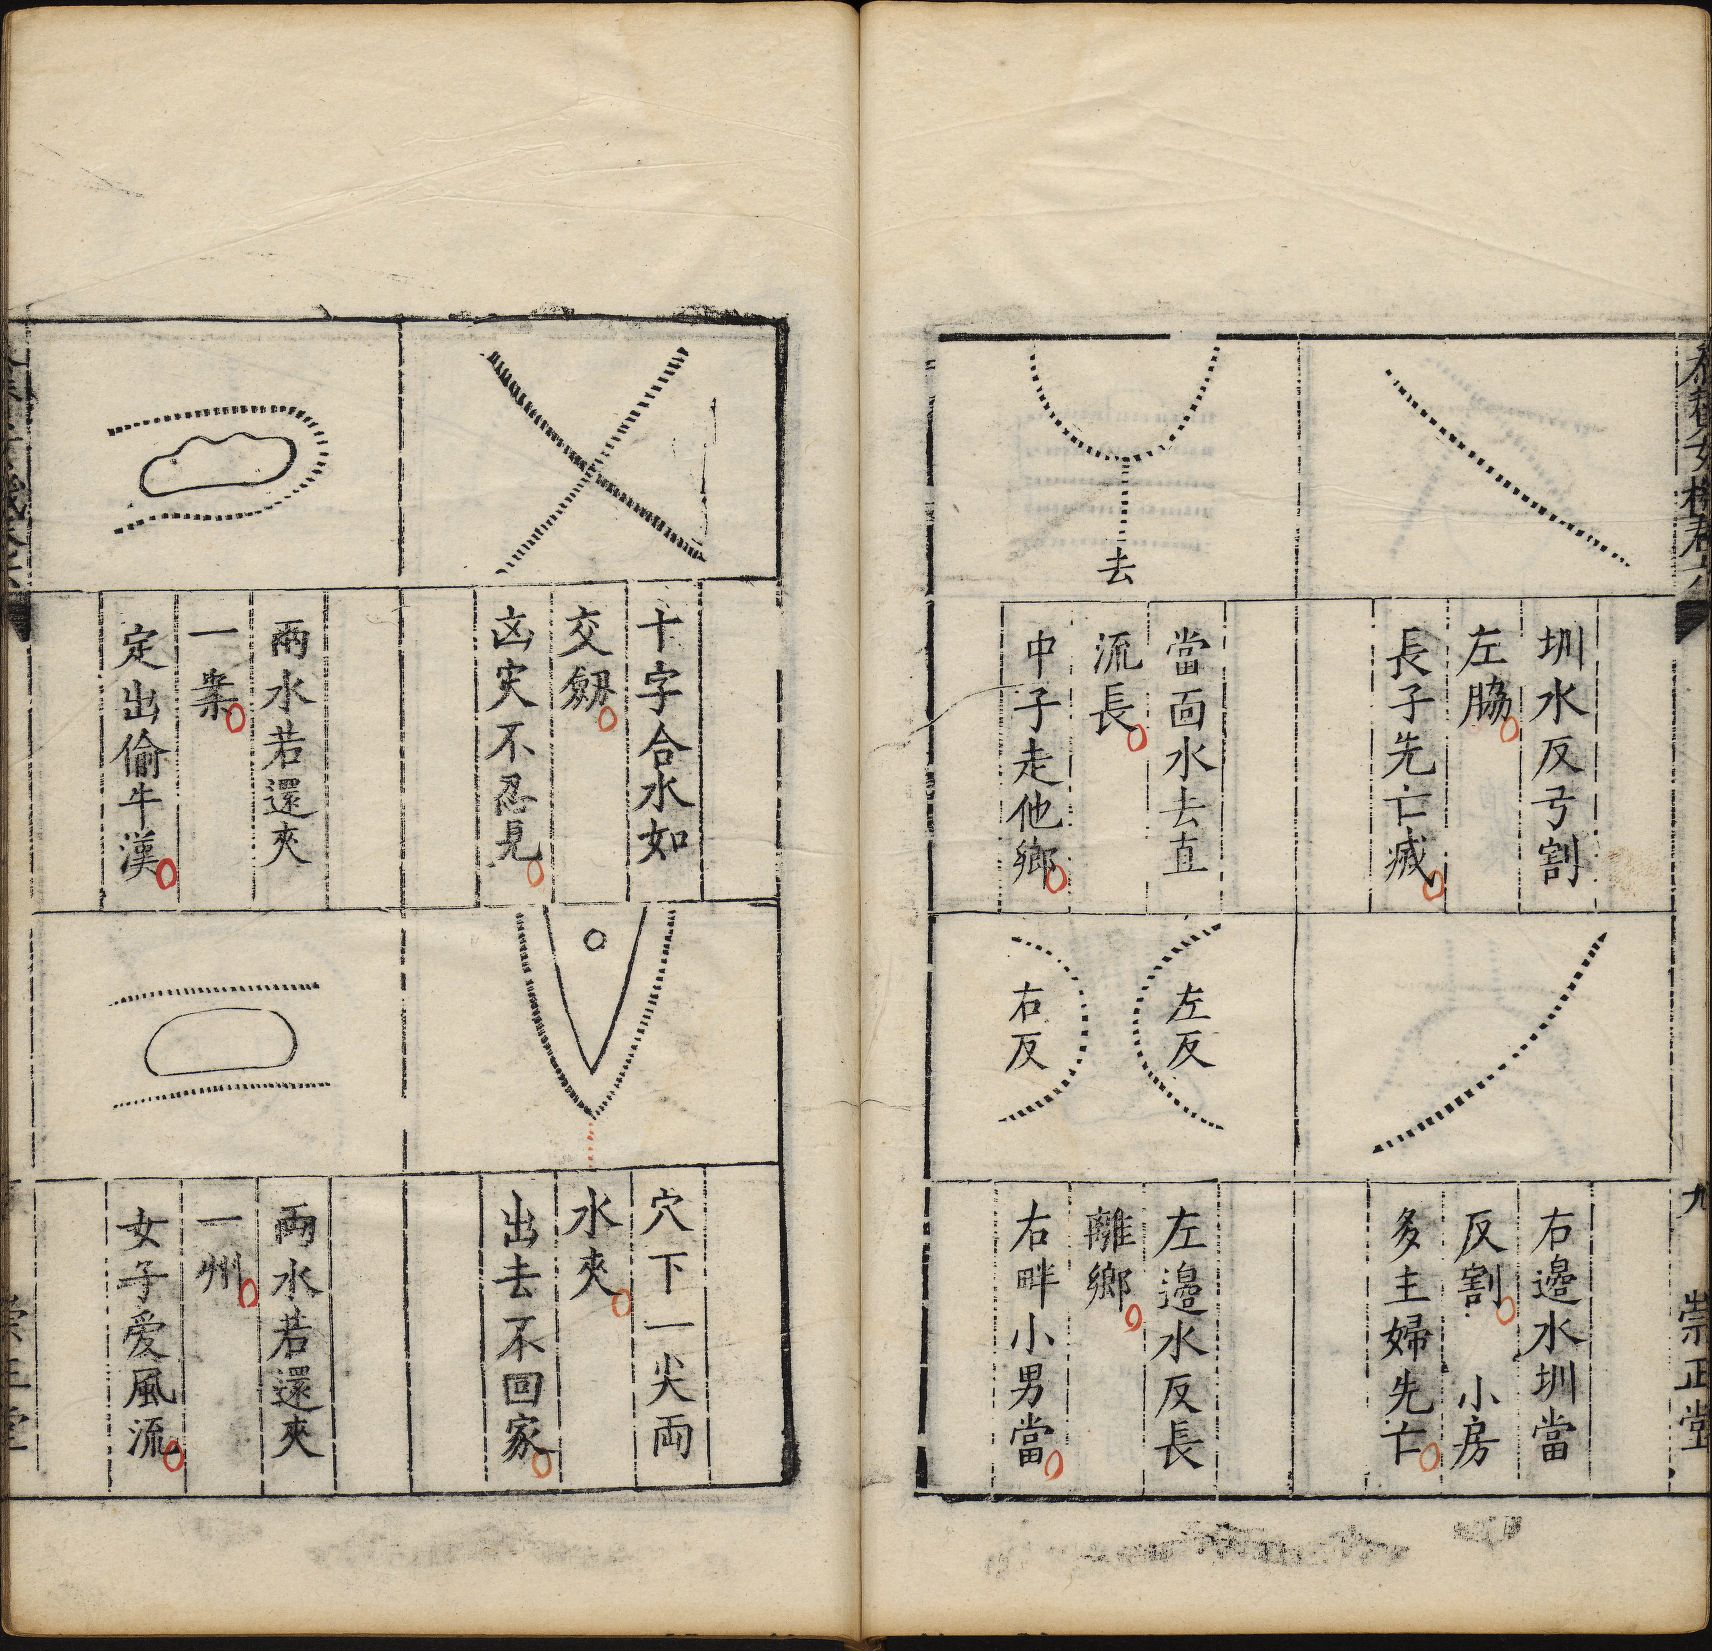 圳水反弓割
左脇
長子先亡㓕
去
當面水去直
流長
中子走他鄉
右邊水圳當
反割 小房
多主婦先亡
左反
右反
左邊水反長
離鄉
右畔小男當
九
崇正堂
十字合水如
交劔
凶灾不忍見
兩水若還夾
一案
定出偷牛漢
穴下一尖両
水夾
出去不回家
両水若還夾
一州
女子爱風流